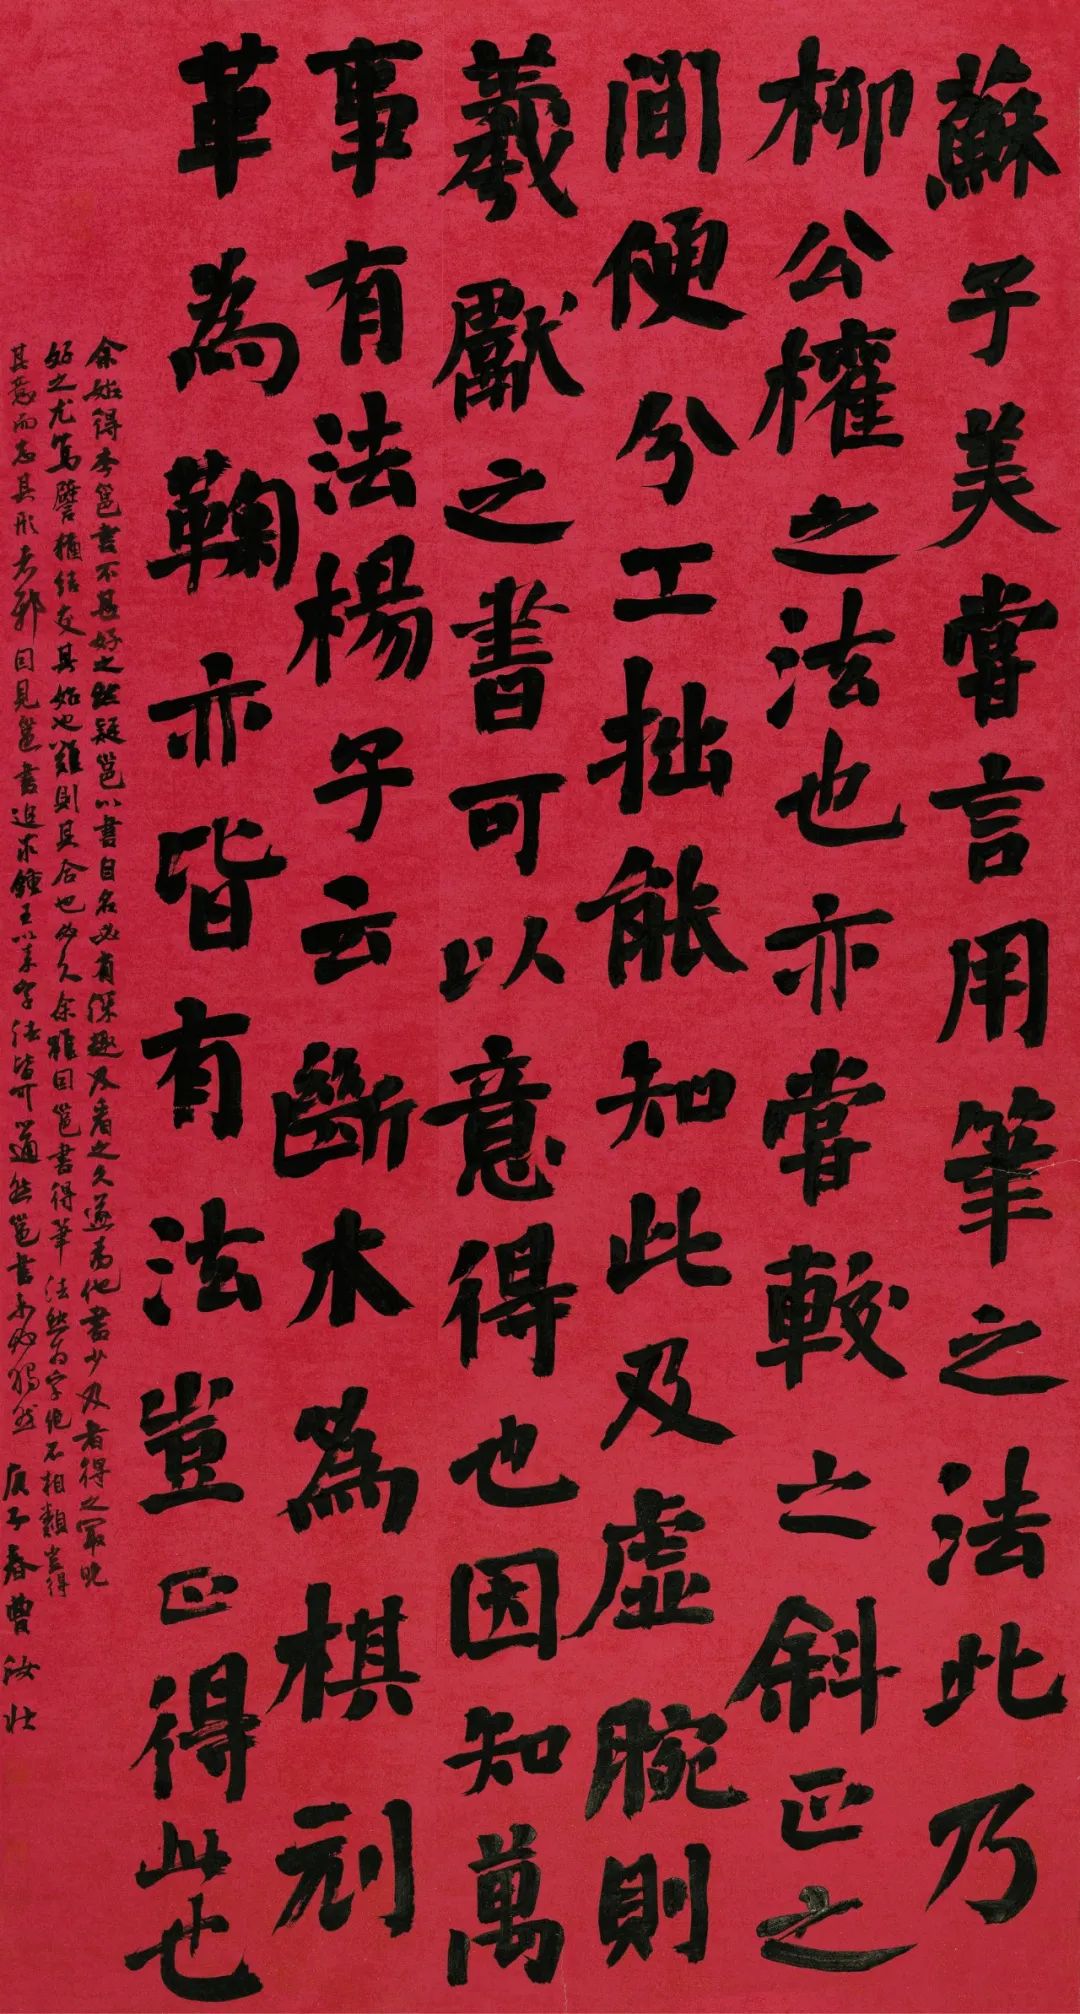 蘇子美嘗言用筆之法此乃
柳公權之法也亦嘗較之斜正之
間便分工拙能知此及虛腕則
羲獻之書可以意得也因知萬
事有法楊子云斷木為棋刓
革為鞠亦皆有法豈正得此也
余始得李邕書不甚好之然疑邕以書自名必有深趣及看之久遂為他書少及者得之最晚
好之尤篤譬猶結交其始也難則其合也必久余雖因邕書得筆法然為字絕不相類豈得
其意而忘其形者邪因見邕書追求鍾王以來字法皆可通然邕書未必獨然 庚子春曹汝壯